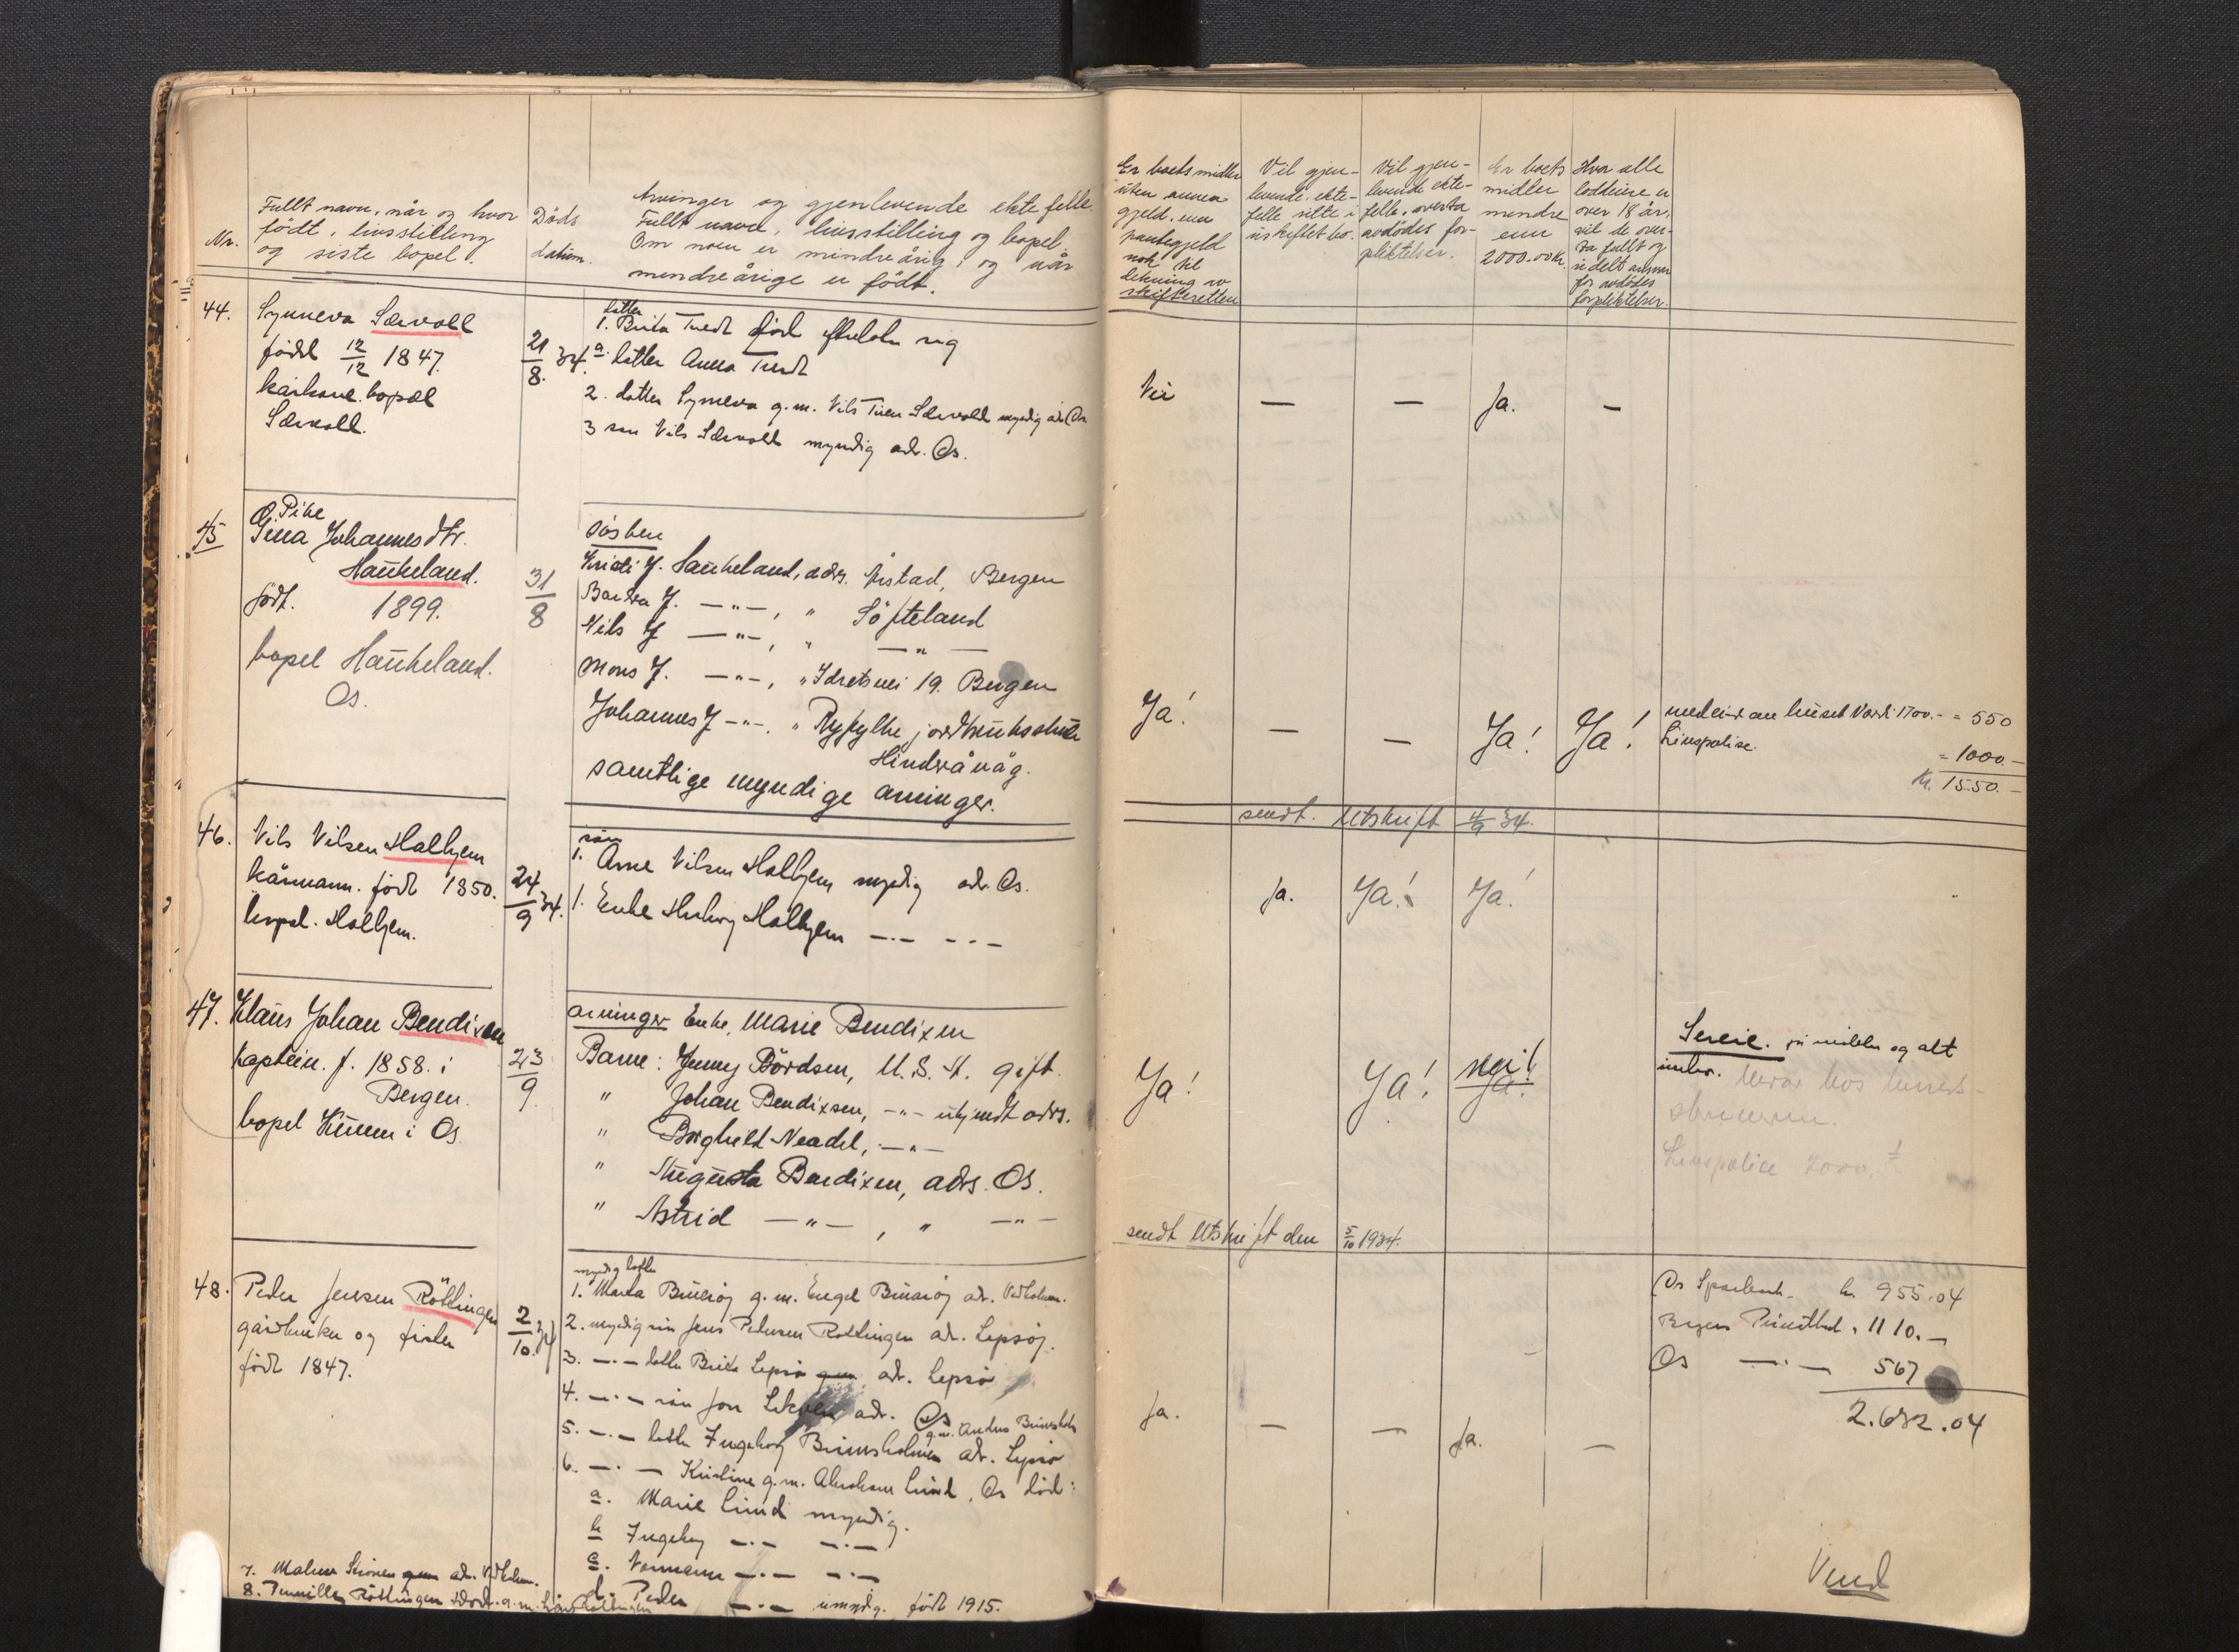 Nr.
Fullt navn, når og hvor
født, livsstilling
og siste bopel.
Døds
datum.
Arvinger og gjenlevende ektefelle.
Fullt navn, livsstilling og bopel.
Om noen er mindreårig, og når
mindreårige er født.
44.
Synneva Särvoll
født 12/12 1847.
kårkone. bopæl
Särvoll.
21/8. 34.
datter
1. Brita Tveit død efterlater sig
a. datter Anna Tveit
2. datter Synneva g.m. Nils Särvold myndig adr. Os.
3 søn Nils Särvold myndig adr. Os.
45
Pike
Gina Johannesdtr.
Haukeland.
født. 1899.
bopel Haukeland.
Os.
31/8
søsken
Kristi J. Haukeland, adrs. Årstad, Bergen
J. —"—, " Söfteland
Nils J —"—, " —"—
Mons J. —"—, " Idretsvei 19. Bergen
Johannes J —"—. " jordbruksskule
Hindråvåg.
samtlige myndige arvinger.
46.
Nils Nilsen Halhjem
kårmann. født 1850.
bopel. Halhjem.
24/9 34.
søn
1. Arne Nilsen Halhjem myndig adr. Os.
1. Enke Halhjem —"— —"—
47.
Klaus Johan Bendixen
kaptein. f. 1858. i
Bergen.
bopel Kuven i Os.
23/9.
arvinger Enke, Marie Bendixen
Barne: Jenny Bördsen, U.S.A. gift.
" Johan Bendixsen, —"— ukjendt adrs.
" Borghild Neadel, —"—
" Augusta Bendixen, adrs. Os.
" Astrid —"—, " —"—
48.
Peder Jensen Röttingen
gårdbruker og fisker
født 1847.
2/10. 34
myndig datter
1. Marta g.m. Engel adr.
2. myndig søn Jens Pedersen Rottingen adr. Lepsøy.
3. —"— datter Brita Lepsø adr. Lepsø
4. —"— søn Jon Lekven adr. Os
g.m. Anders
5. —"— datter Ingeborg adr. Lepsø
6. —"— Kristine g.m. Abraham Lund, Os død:
a. Marie Lund myndig.
b Ingeborg —"— —"—
c. Normann —"— —"—
d. Peder —"— umyndig. født 1915.
7. Malene adr.
8. Pernille Röttingen
Er boets midler
uten annen
gjeld, enn
pantegjeld
nok til
dekning av
skifteretten
Vil gjen-
levende ekte-
felle sitte i
uskiftet bo.
Vil gjen-
levende ekte-
felle, overta
avdødes for-
pliktelser.
Er boets
midler
mindre
enn
2000.00 kr.
Hvor alle
loddeiere er
over 18 år,
vil de over-
ta fullt og
udelt ansvar
for avdødes
forpliktelser.
Nei — — Ja. —
Ja! — — Ja! Ja!
medeier av huset Verdi 1700.- = 550
Livspolise. = 1000.—
Kr. 1550.—
sendt. Utskrift 4/9 34.
Ja. Ja! Ja!
Ja! Ja! nei! Ja!
og alt
innbo.
Livspolice
sendt Utskrift den 5/10 1934.
Os Sparbank. kr. 955.04
Bergens Privatbank. " 1110.—
Os —"— 567
2.632.04
Ja. — — Ja. —
Vend